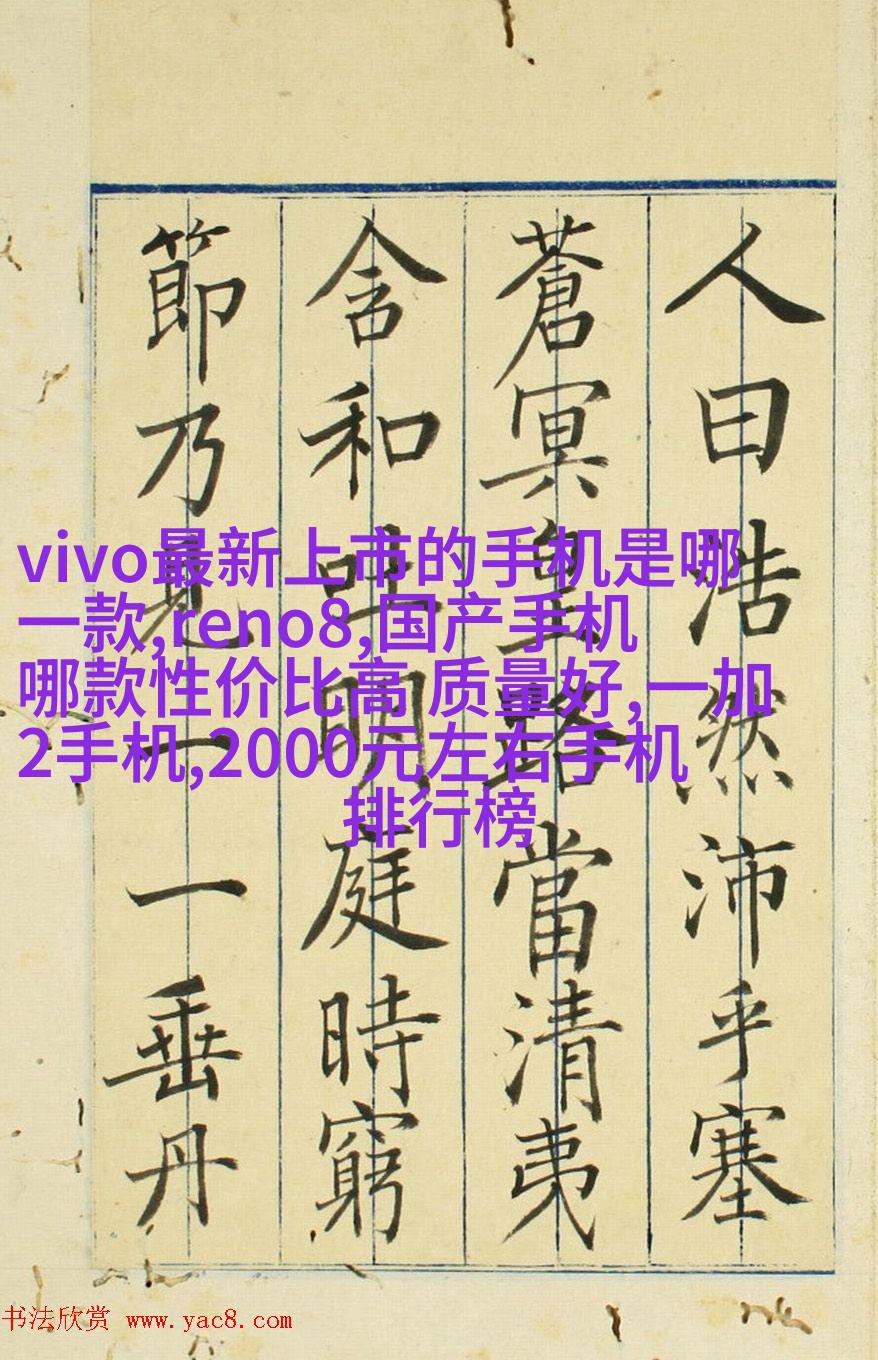 人曰浩然沛乎塞
蒼冥皇路當清夷
含和吐明庭時窮
節乃見一一垂丹
vivo最新上市的手机是哪
一款,reno8,国产手机
哪款性价比高 质量好,一加
2手机,2000元左右手机
排行榜
书法欣赏 www.yac8.com